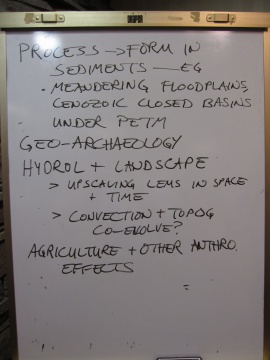 PROCESS → FORM IN
SEDIMENTS — EG
- MEANDERING FLOODPLAINS,
CENOZOIC CLOSED BASINS
- UNDER PETM
GEO-ARCHAEOLOGY
HYDROL + LANDSCAPE
> UPSCALING LEMS IN SPACE
+ TIME
> CONVECTION + TOPOG
CO-EVOLVE?
AGRICULTURE + OTHER ANTHRO.
EFFECTS